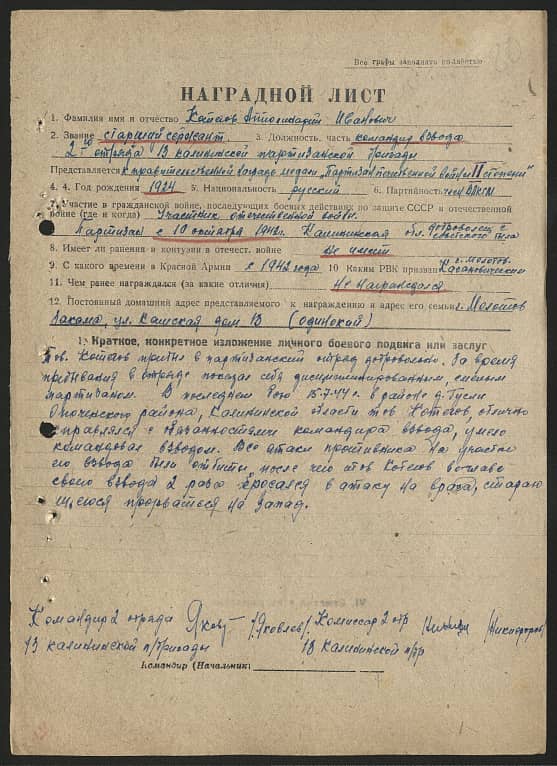 Все графы заполнять полностью
НАГРАДНОЙ ЛИСТ
1. Фамилия имя и отчество Котегов Апполинарий Иванович
2. Звание старший сержант 3. Должность, часть командир взвода
2го отряда 13 калининской партизанской бригады
Представляется к правительственной награде медаль „Партизан отечественной войны" II степени"
4. 4. Год рождения 1924 5. Национальность русский 6. Партийность член ВЛКСМ
7. Участие в гражданской войне, последующих боевых действиях по защите СССР и отечественной
войне (где и когда) Участник отечественной войны.
Партизан с 10 октября 1942г. Калининская обл. доброволец с советского тыла
8. Имеет ли ранения и контузии в отечест. войне Не имеет
9. С какого времени в Красной Армии с 1942 года 10 Каким РВК призван г. Молотов. Кагановичским
11. Чем ранее награждался (за какие отличия) Не награждался
12. Постоянный домашний адрес представляемого к награждению и адрес его семьи г. Молотов
Закама, ул. Камская дом 13 (одинокий)
1. Краткое, конкретное изложение личного боевого подвига или заслуг
Тов. Котегов прибыл в партизанский отряд добровольно. За время
пребывания в отряде показал себя дисциплинированным, смелым
партизаном. В последнем бою 15.7.44г. в районе д.
Опоченского района, Калининской области тов Котегов, отлично
справлялся с обязанностями командира взвода, умело
командовал взводом. Все атаки противника на участке
его взвода были отбиты, после чего тов Котегов во главе
своего взвода 2 раза бросался в атаку на врага, стараю
щегося прорваться на Запад.
Командир 2 отряда /Яковлев/ Комиссар 2 отр /Никифоров/
13 калининской п/бригады 13 калининской п/бр
Командир (Начальник)